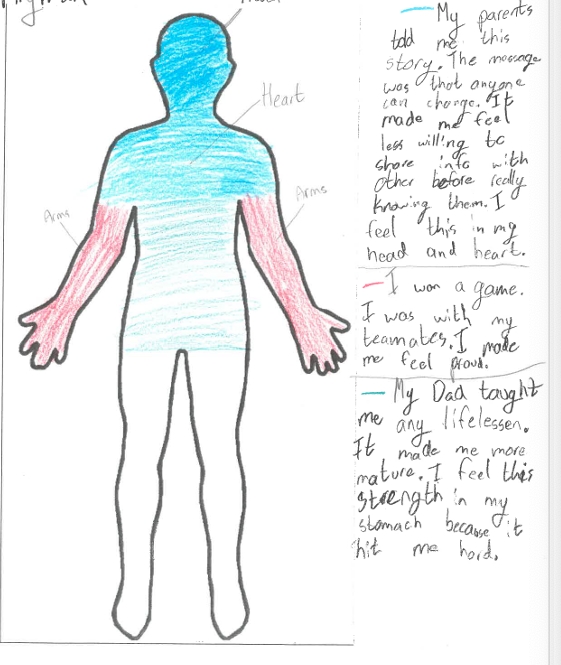 Heart
Arms
Arms
My parents
told me this
story. The message
was that anyone
can change. It
made me feel
less willing to
share info with
other before really
knowing them. I
feel this in my
head and heart.
I won a game.
I was with my
teamates. I made
me feel proud.
My Dad taught
me any lifelessen.
It made me more
mature. I feel this
strength in my
stomach because it
hit me hard.